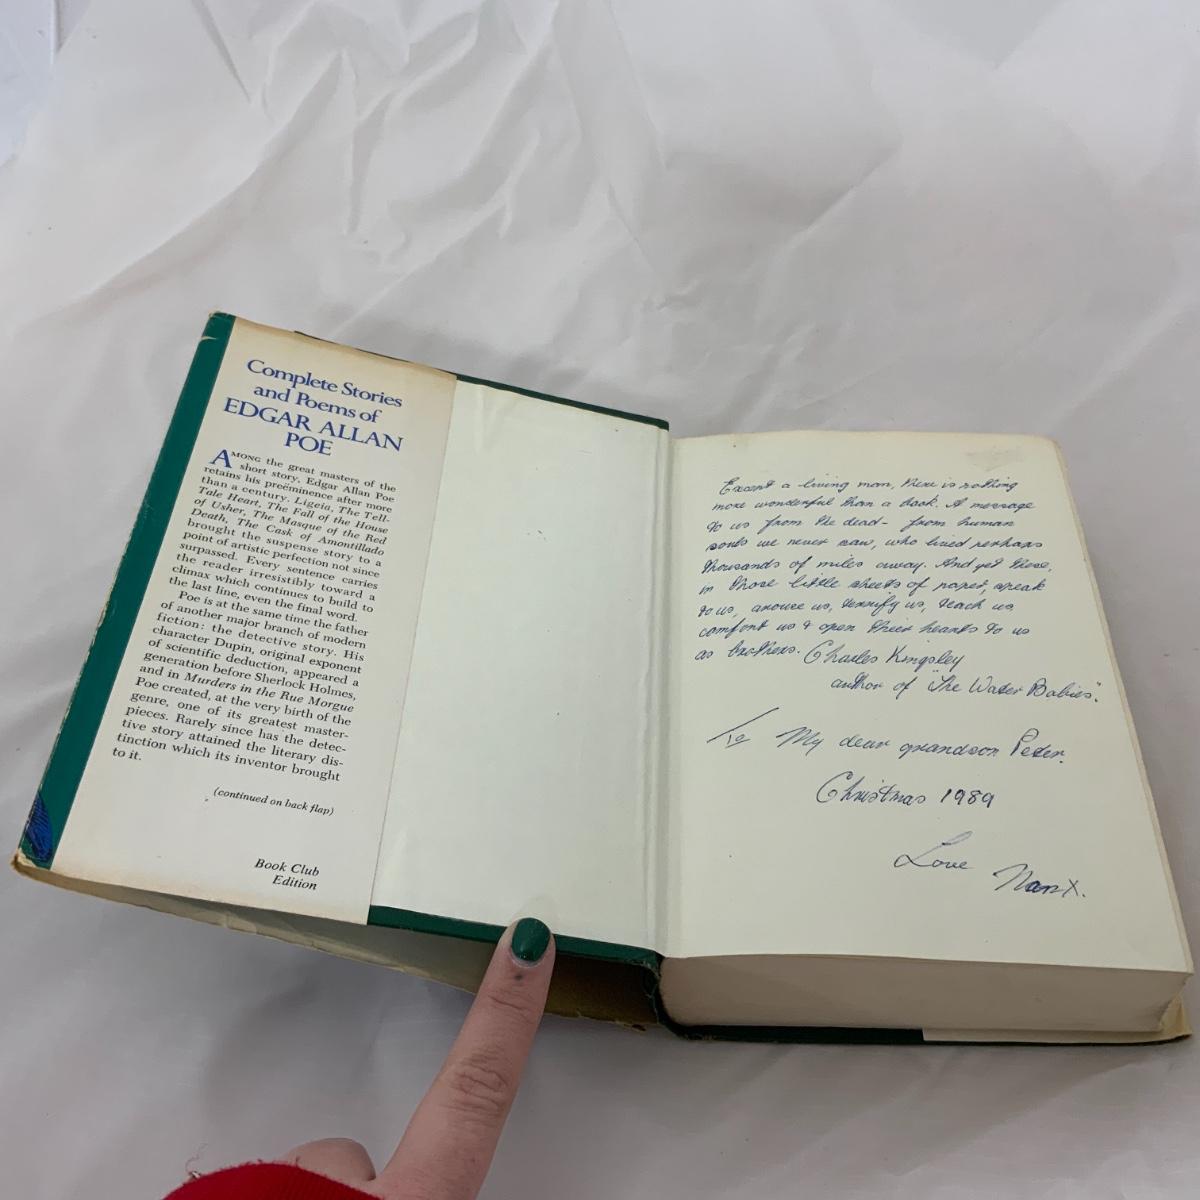 Complete Stories
and Poems of
EDGAR ALLAN
POE
AMONG the great masters of the
short story, Edgar Allan Poe
retains his preëminence after more
than a century. Ligeia, The Tell-
Tale Heart, The Fall of the House
of Usher, The Masque of the Red
Death, The Cask of Amontillado
brought the suspense story to a
point of artistic perfection not since
surpassed. Every sentence carries
the reader irresistibly toward a
climax which continues to build to
the last line, even the final word.
Poe is at the same time the father
of another major branch of modern
fiction: the detective story. His
character Dupin, original exponent
of scientific deduction, appeared a
generation before Sherlock Holmes,
and in Murders in the Rue Morgue
Poe created, at the very birth of the
genre, one of its greatest master-
pieces. Rarely since has the detec-
tive story attained the literary dis-
tinction which its inventor brought
to it.
(continued on back flap)
Book Club
Edition
Except a living man, there is nothing
more wonderful than a book. A message
to us from the dead - from human
souls we never saw, who lived perhaps
thousands of miles away. And yet these,
in those little sheets of paper, speak
to us, arouse us, terrify us, teach us
comfort us & open their hearts to us
as brothers. Charles Kingsley
author of "The Water Babies".
To My dear grandson Peter.
Christmas 1989
Love Nan X.